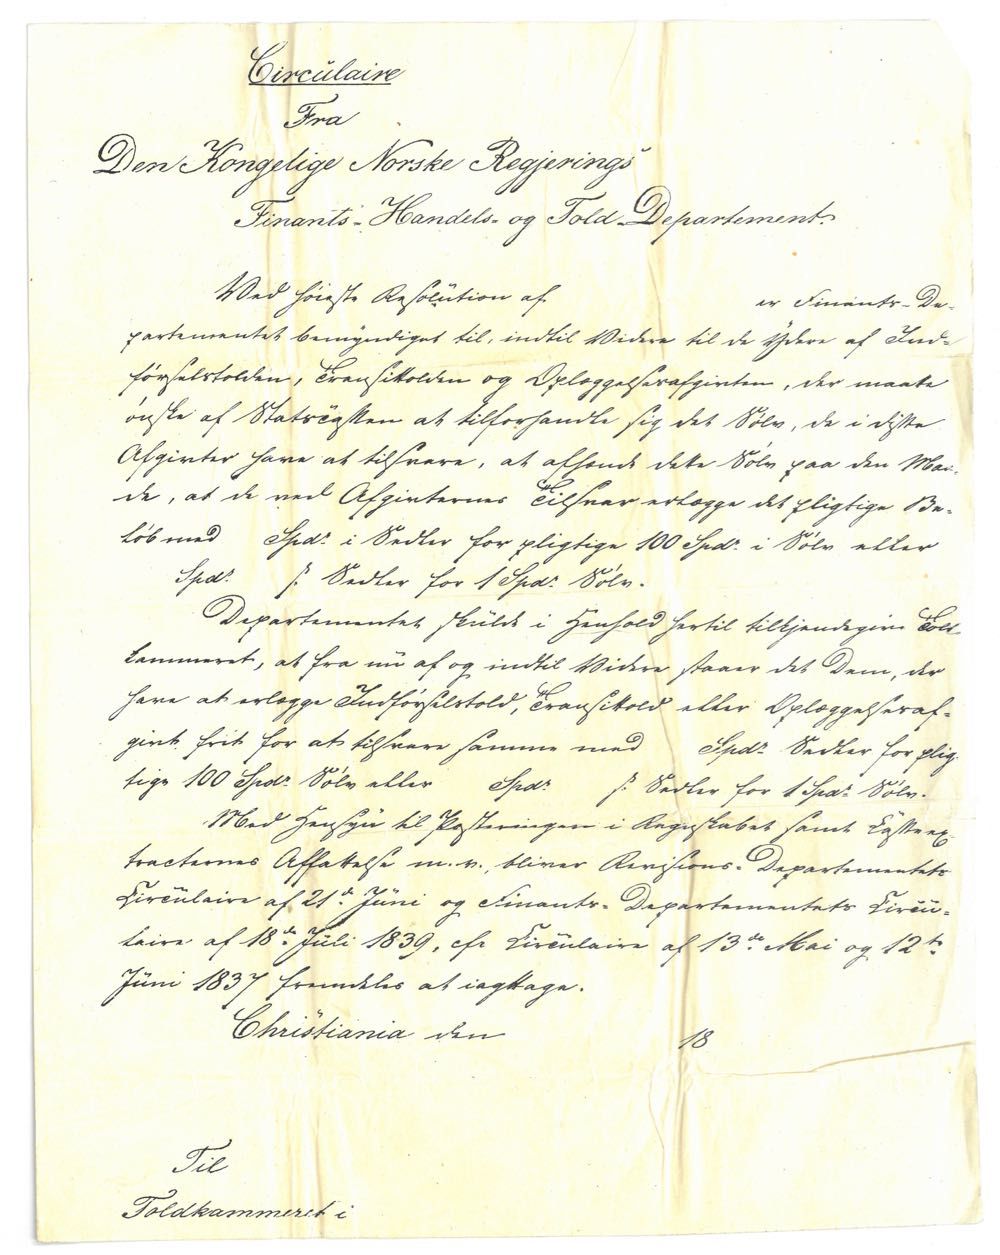 Circulaire
Fra
Den Kongelige Norske Regjerings
Finants- Handels- og Told-Departement.
Ved høieste Resolution af er Finants-De-
partementet bemyndiget til, indtil Videre til de Ydere af Ind-
førselstolden, Transittolden og Oplæggelsesafgivten, der maatte
ønske af Statscassen at tilforhandle sig det Sølv, de i disse
Afgivter have at tilsvare, at afhænde dette Sølv paa den Maa-
de, at de ved Afgivternes Tilsvar erlægge det pligtige Be-
løb med Spdr. i Sedler for pligtige 100 Spdr. i Sølv eller
Spdr. ß Sedler for 1 Spdr. Sølv.
Departementet skulde i Henhold hertil tilkjendegive Told-
kammeret, at fra nu af og indtil Videre staaer det Dem, der
have at erlægge Indførselstold, Transittold eller Oplæggelsesaf-
givt frit for at tilsvare samme med Spdr. Sedler for plig-
tige 100 Spdr. Sølv eller Spdr. ß Sedler for 1 Spdr. Sølv.
Med Hensyn til Posteringen i Regnskabet samt Casseex-
tracternes Affattelse m. v. bliver Revisions-Departementets
Circulaire af 21de Juni og Finants-Departementets Circu-
laire af 18de Juli 1839, cfr Circulaire af 13de Mai og 12te
Juni 1837 fremdeles at iagttage.
Christiania den 18
Til
Toldkammeret i